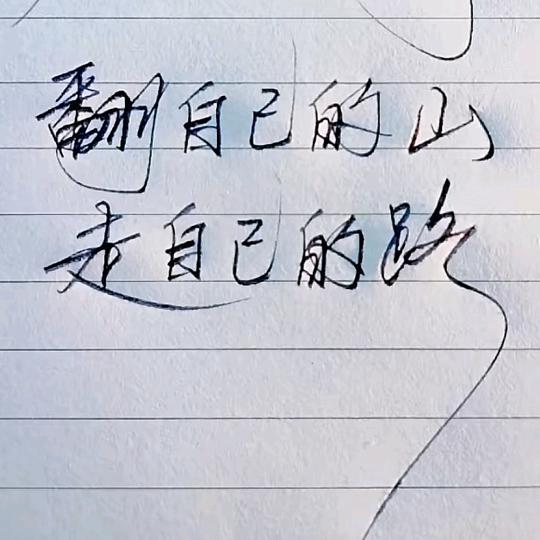 翻自己的山
走自己的路